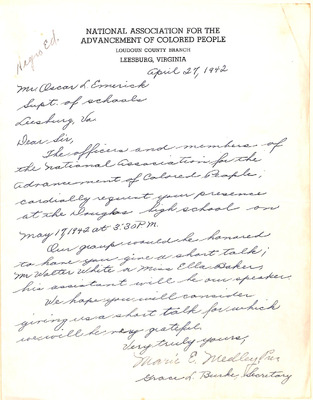 Negro Ed.
NATIONAL ASSOCIATION FOR THE
ADVANCEMENT OF COLORED PEOPLE
LOUDOUN COUNTY BRANCH
LEESBURG, VIRGINIA
April 27, 1942
Mr Oscar L Emerick
Supt. of schools
Leesburg, Va
Dear Sir,
The officers and members of
the national Association for the
Advancement of Colored People,
cordially request your presence
at the Douglas high school on
May 17, 1942 at 3:30 P.M.
Our group would be honored
to have your give a short talk;
Mr Walter White a Miss Ella Baker,
his assistant will be our speaker.
We hope you will consider
giving us a short talk for which
we will be very grateful.
Very truly yours,
Marie E. Medley, Pres
Grace L Burke, Secretary